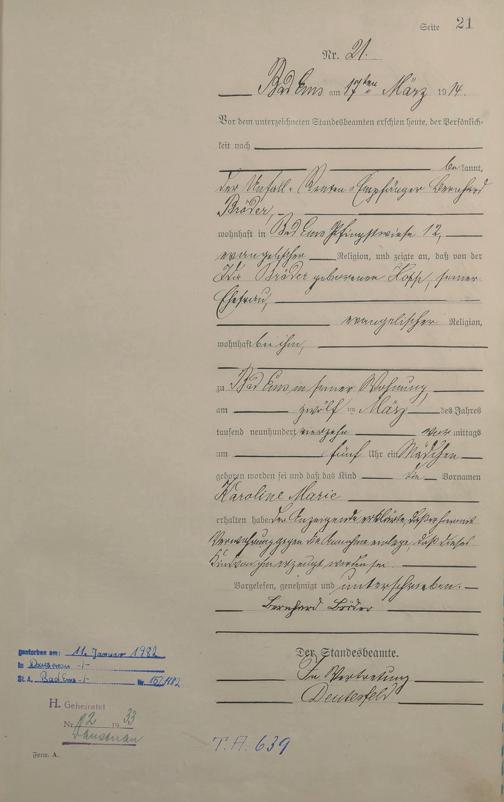 Seite 21
Nr. 21.
Bad Ems am 17ten März 1914.
Vor dem unterzeichneten Standesbeamten erschien heute, der Persönlich-
keit nach
bekannt,
der Unfall-Renten-Empfänger Bernhard
Bröder,
wohnhaft in Bad Ems Pfingstwiese 12,
evangelischer Religion, und zeigte an, daß von der
Bröder geborenen seiner
Ehefrau,
evangelischer Religion,
wohnhaft bei ihm,
zu Bad Ems in seiner Wohnung,
am zwölften März des Jahres
tausend neunhundert vierzehn vormittags
um fünf Uhr ein Mädchen
geboren worden sei und daß das Kind die Vornamen
Karoline Marie
erhalten habe. Der Anzeigende erklärte, daß er hiermit
Verwahrung gegen die Annahme einlege, daß dieses
Kind von ihm erzeugt worden sei.
Vorgelesen, genehmigt und unterschrieben.
Bernhard Bröder
Der Standesbeamte.
In Vertretung
gestorben am: 11. Januar 1982
in Dausenau
St. A. Bad Ems Nr.
H. Geheiratet
Nr. 12 1933
Dausenau
Form. A.
T.A. 639